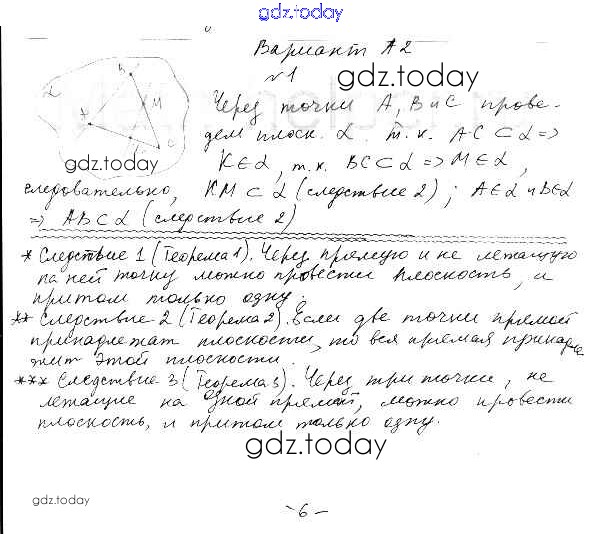 gdz.today
Вариант А2
№1
gdz.today
Через точки А, В и С прове-
дем плоск. α. т.к. AC ⊂ α =>
K ∈ α, т.к. BC ⊂ α => M ∈ α,
gdz.today
следовательно, KM ⊂ α (следствие 2); A ∈ α и B ∈ α
=> AB ⊂ α (следствие 2)
* Следствие 1 (Теорема 1). Через прямую и не лежащую
на ней точку можно провести плоскость, и
притом только одну.
** Следствие 2 (Теорема 2). Если две точки прямой
принадлежат плоскости, то вся прямая принадле-
жит этой плоскости.
*** Следствие 3 (Теорема 3). Через три точки, не
лежащие на одной прямой, можно провести
плоскость, и притом только одну.
gdz.today
gdz.today
- 6 -